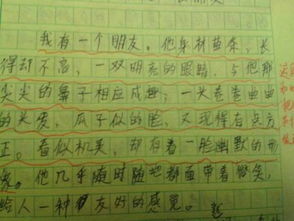 我有一个朋友。他身材苗条，长
得却不高，一双明亮的眼睛，与他那
尖尖的鼻子相应成趣，一头卷卷曲曲
的头发，瓜子似的脸，又现得有点方
正。看似机美，却有着一脸幽默的形
象。他几乎随时随地都面带着微笑，
给人一种友好的感觉。